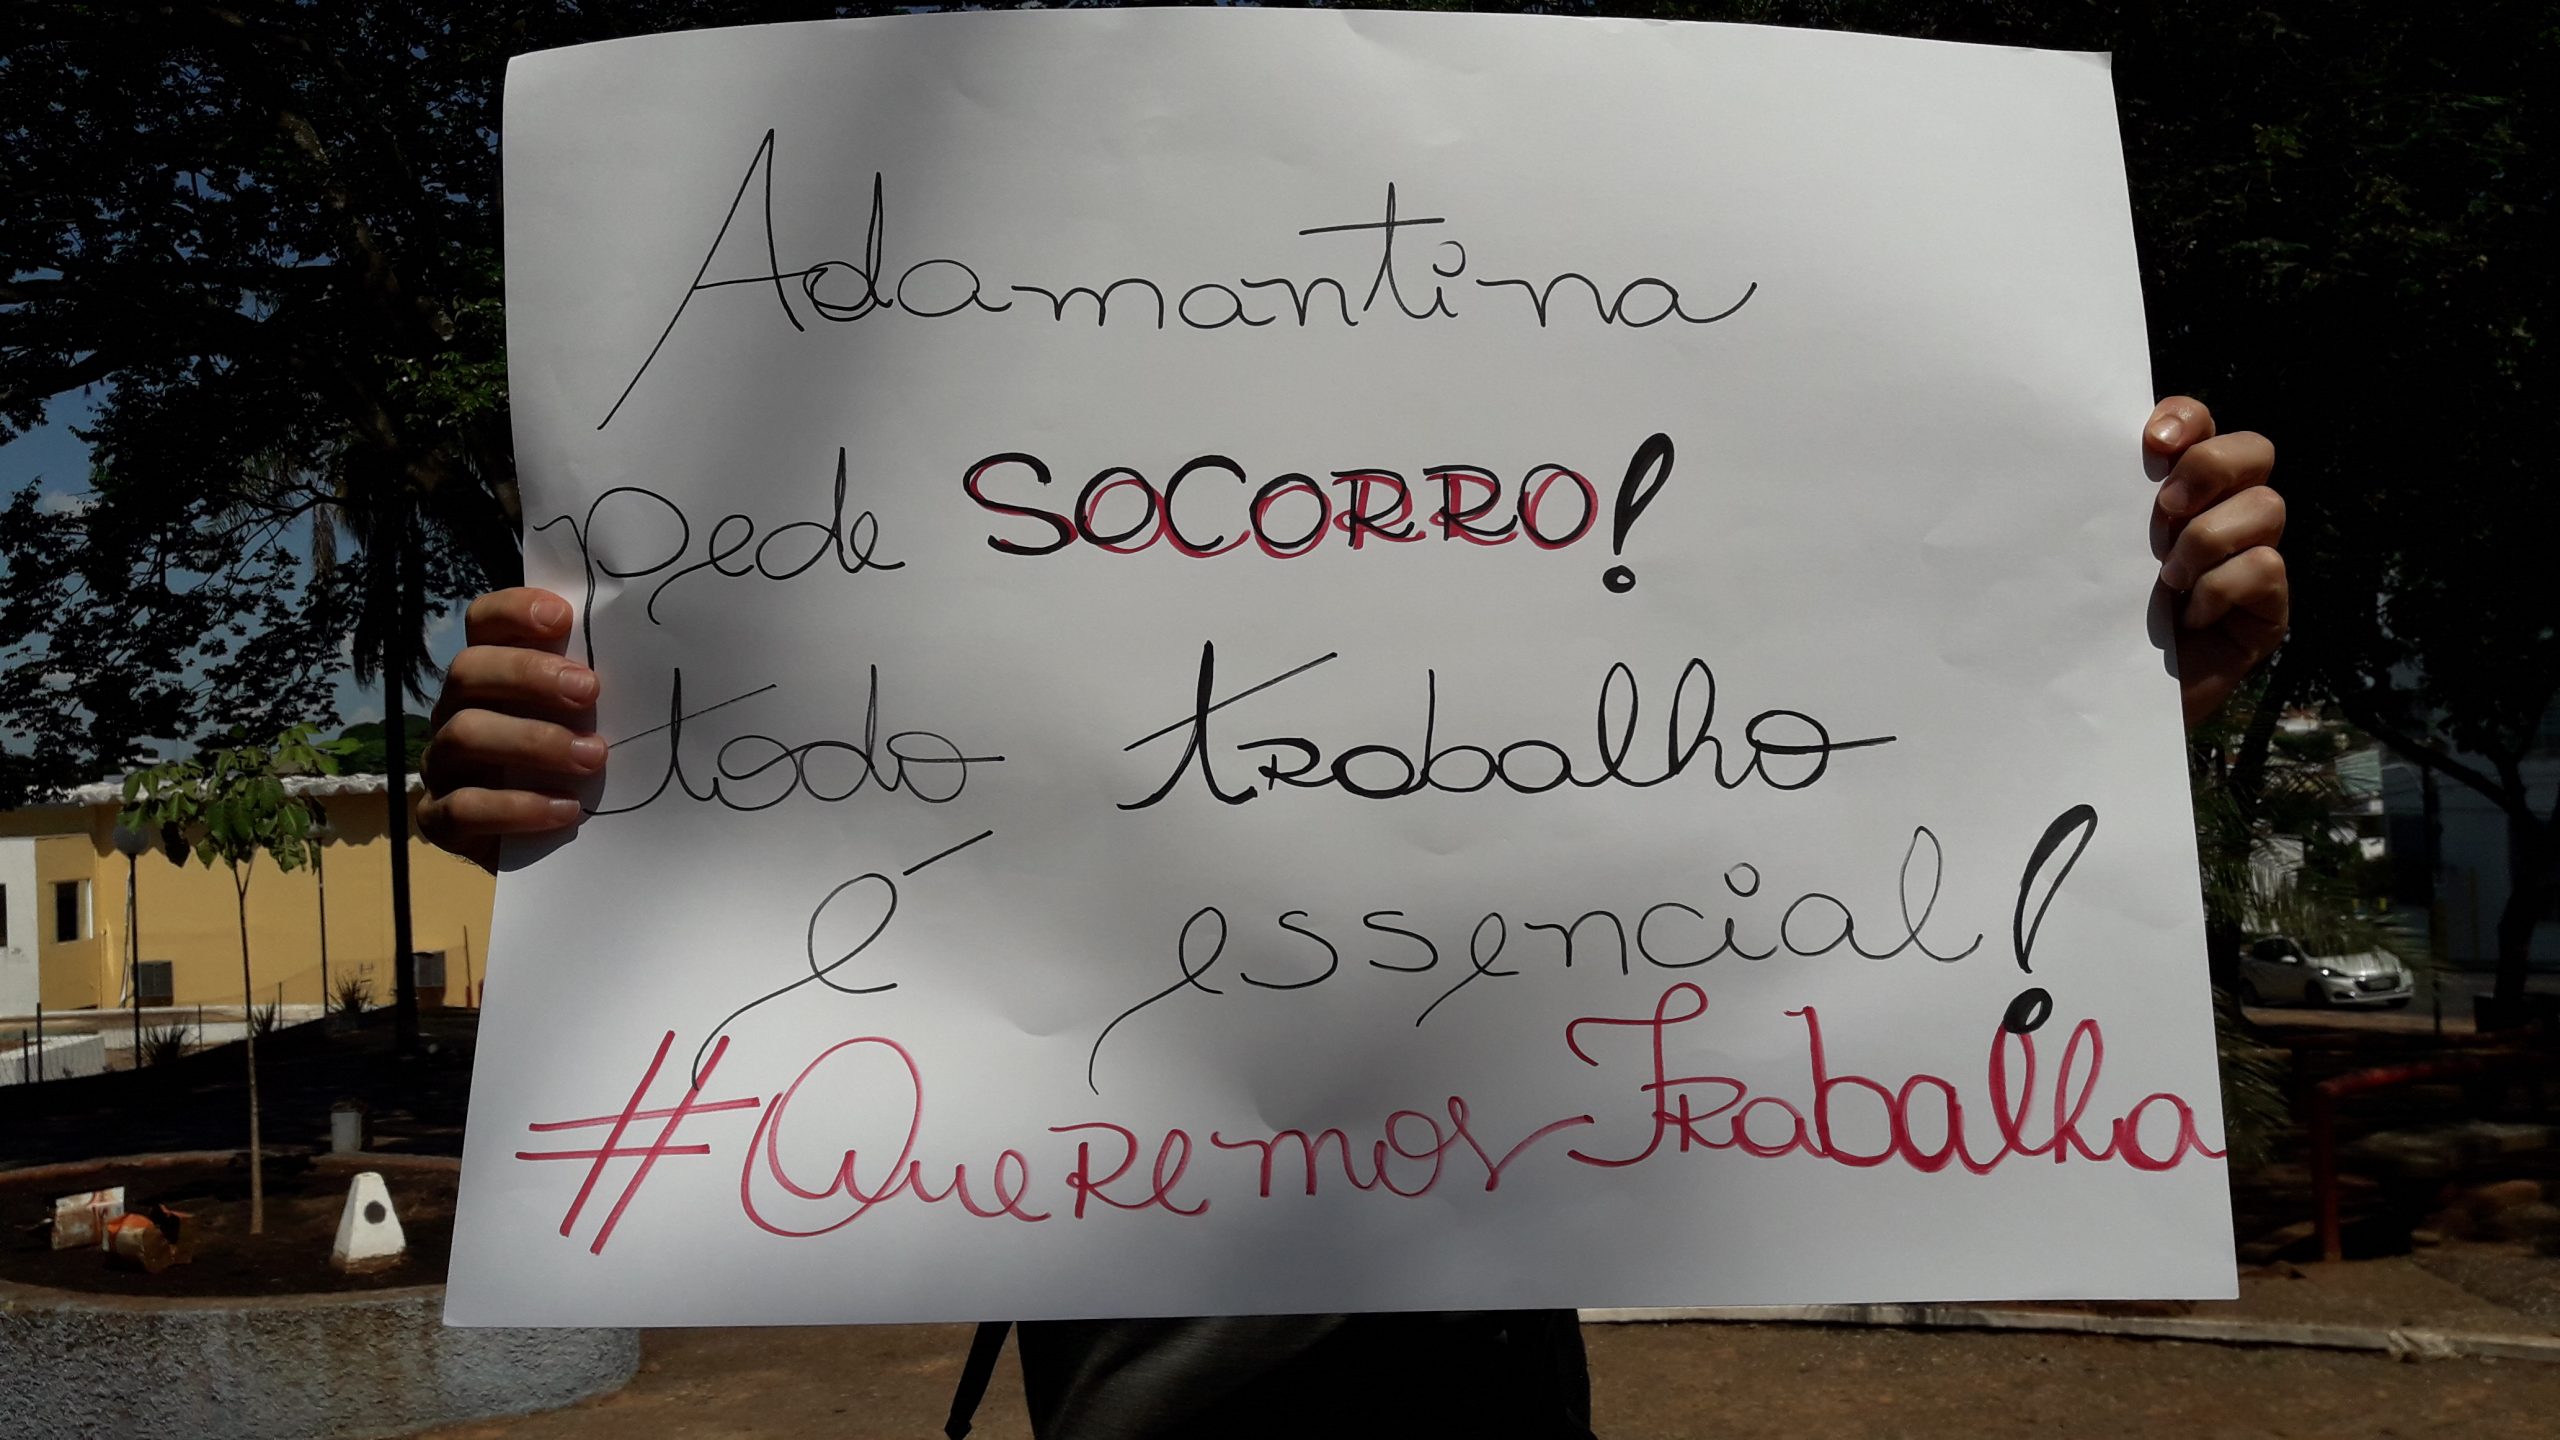 Adamantina
pede SOCORRO!
todo trabalho
é essencial!
#Queremos Trabalha